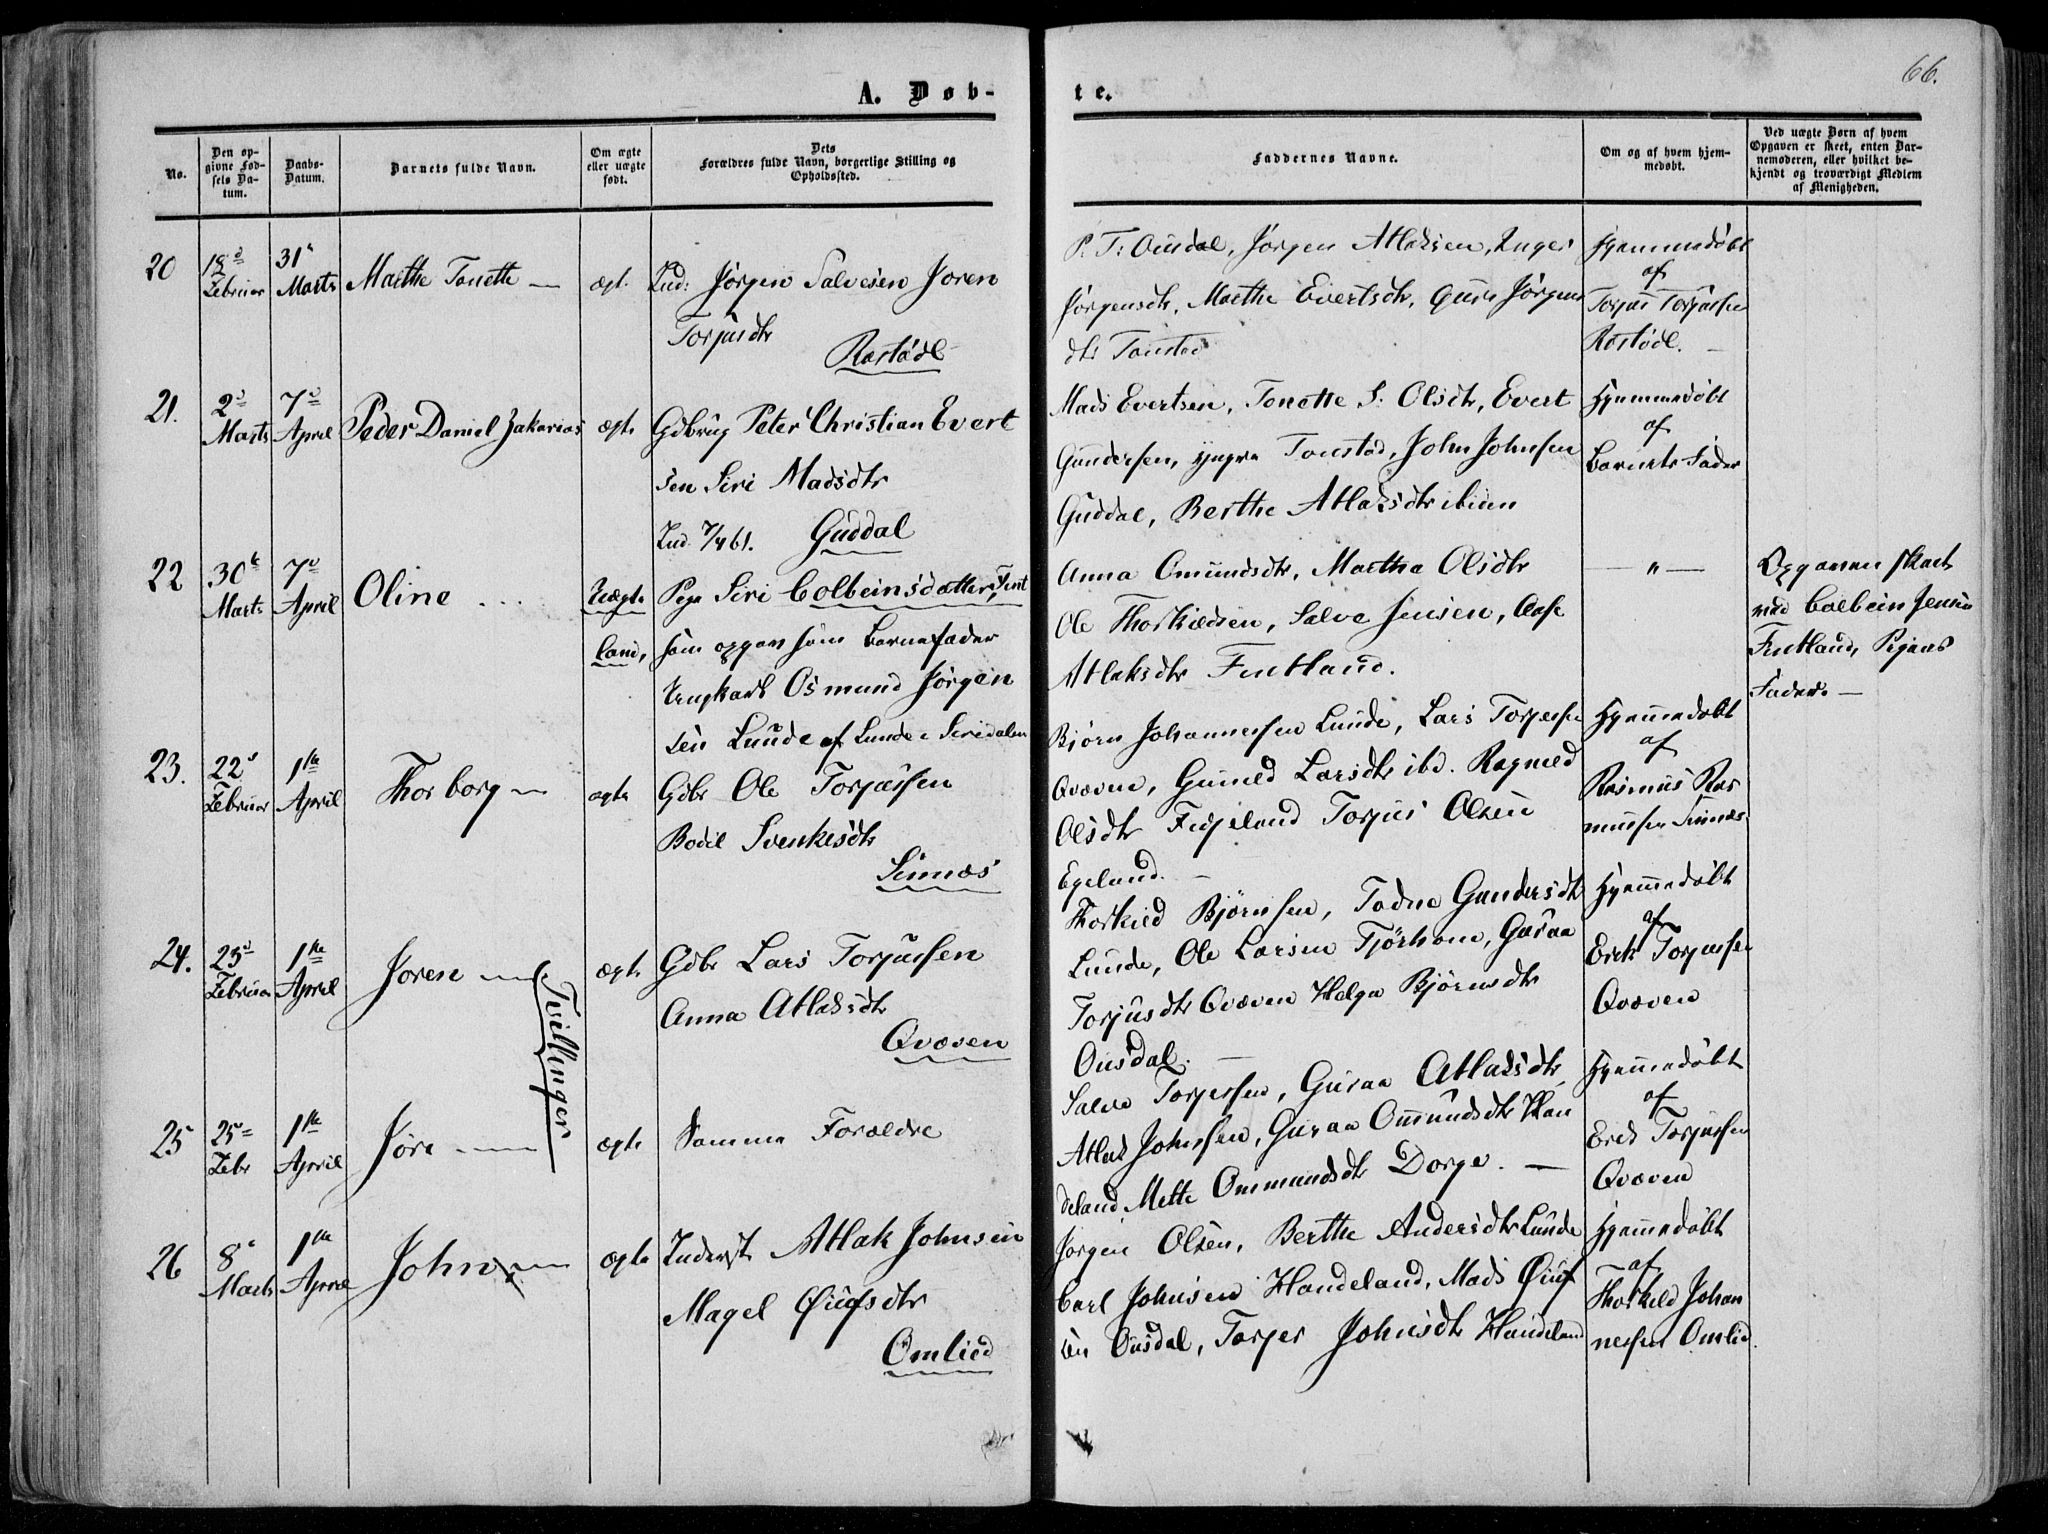 66.
A. Døb-
te.
No.
Den op-
givne Fød-
sels Da-
tum.
Daabs-
Datum.
Barnets fulde Navn.
Om ægte
eller uægte
født.
Dets
Forældres fulde Navn, borgerlige Stilling og
Opholdssted.
Faddernes Navne.
Om og af hvem hjem-
medøbt.
Ved uægte Børn af hvem
Opgaven er skeet, enten Bar-
nemoderen, eller hvilket be-
kjendt og troværdigt Medlem
af Menigheden.
20
18
Februar
31
Marts
Marthe Tonette
ægt.
Ind: Jørgen Salvesen Joren
Torjusdtr
Rostødl
P. T: Ousdal, Jørgen Atlaksen, Inger
Jørgensdtr, Marthe Evertsdtr, Guro Jørgens
dtr Tonstad
Hjemmedøbt
af
Torjus Torjussen
Rostødl.
21.
2
Marts
7
April
Peder Daniel Zakarias
ægte
Gdbrug Peter Christian Evert
sen Siri Madsdtr
Ind. 7/4 61. Guddal
Mads Evertsen, Tonette S: Olsdtr, Evert
Gundersen, yngre Tonstad, John Johnsen
Guddal, Berthe Atlaksdtr ibiden
Hjemmedøbt
af
Barnets Fader
22
30
Marts
7
April
Oline
Uægte
Pige Siri Colbeinsdatter, Fint
land, som opgav som Barnefader
Ungkarl Osmund Jørgen
sen Lunde af Lunde i Siredalen
Anna Omundsdtr, Marthe Olsdtr
Ole Thorkildsen, Salve Jensen, Aase
Atlaksdtr Fintland.
— " —
Opgaven skeet
ved Colbein Jensen
Fintland, Pigens
Fader. —
23.
22
Februar
1ste
April
Thorborg
ægte
Gdbr Ole Torjussen
Bodil Svenkesdtr
Sinnes
Bjørn Johannessen Lunde, Lars Torjessen
Qvæven, Gunild Larsdtr ibd. Ragnild
Olsdtr Fidjeland Torjus Olsen
Egeland. —
Hjemmedøbt
af
Rasmus Ras
mussen Sinnes
24.
25
Februar
1ste
April
Joren
Tvillinger
ægte
Gdbr Lars Torjussen
Anna Atlaksdtr
Qvæven
Thorkild Bjørnsen, Tadne Gundersdtr
Lunde, Ole Larsen Tjørhom, Guraa
Torjusdtr Qvæven Helga Bjørnsdtr
Ousdal. —
Hjemmedøbt
af
Erik Torjussen
Qvæven
25
25
Febr
1ste
April
Jøre
ægte
Samme Forældre
Salve Torjersen, Guraa Atlaksdtr,
Atlak Johnsen, Guraa Omundsdtr Han
deland, Mette Ommundsdtr Dorge. —
Hjemmedøbt
af
Erik Torjussen
Qvæven
26
8
Marts
1ste
April
John
ægte
Inderst Atlak Johnsen
Magel Øiufsdtr
Omlied
Jørgen Olsen, Berthe Andersdtr Lunde
Carl Johnsen Handeland, Mads Øiuf
sen Ousdal, Torjer Johnsdtr Handeland
Hjemmedøbt
af
Thorkild Johan
nessen Omlid.